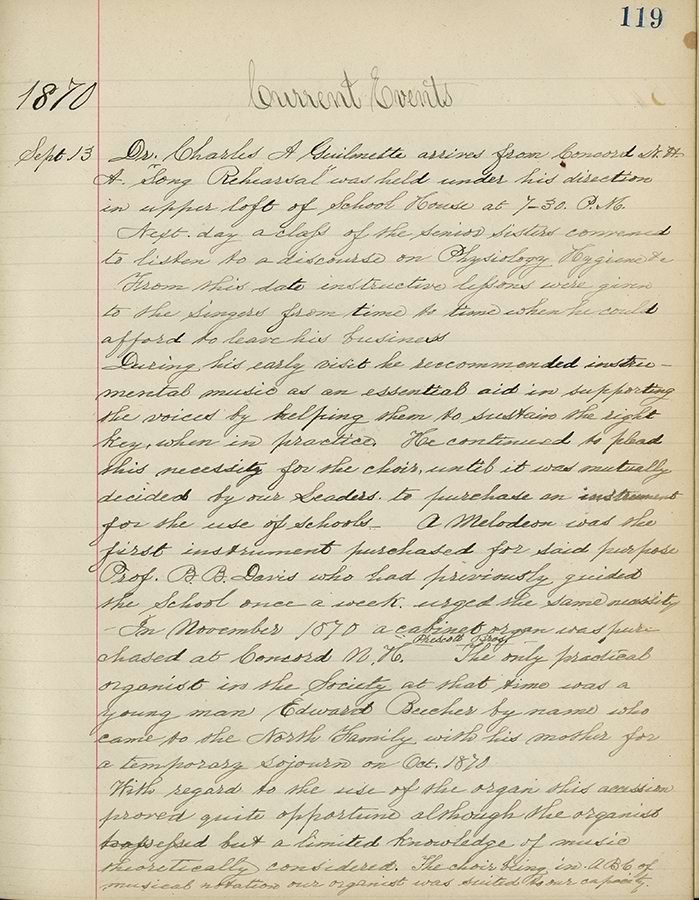 119
1870 Current Events
Sept. 13 Dr. Charles A Guilmette arrives from Concord N. H.
A "Song Rehearsal" was held under his direction
in upper loft of School House at 7-30. P.M.
Next. day a class of the senior sisters convened
to listen to a discourse on Physiology Hygiene &c
From this date instructive lessons were given
to the singers from time to time when he could
afford to leave his business
During his early visit he reccommended instru-
mental music as an essential aid in supporting
the voices by helping them to sustain the right
key, when in practice. He continued to plead
this necessity for the choir, until it was mutually
decided by our Leaders. to purchase an instrument
for the use of schools_ A Melodeon was the
first instrument purchased for said purpose
Prof. B. B. Davis who had previously guided
the School once a week. urged the same necessity
- In November 1870 a cabinet organ was pur-
Prescott & Bros
chased at Concord N. H. The only practical
organist in the Society at that time was a
young man Edward Beecher by name who
came to the North Family with his mother for
a temporary sojourn on Oct. 1870
With regard to the use of the organ this accession
proved quite opportune although the organist
possessed but a limited knowledge of music
theoretically considered. The choir being in A B C of
musical notation our organist was suited to our capacity.